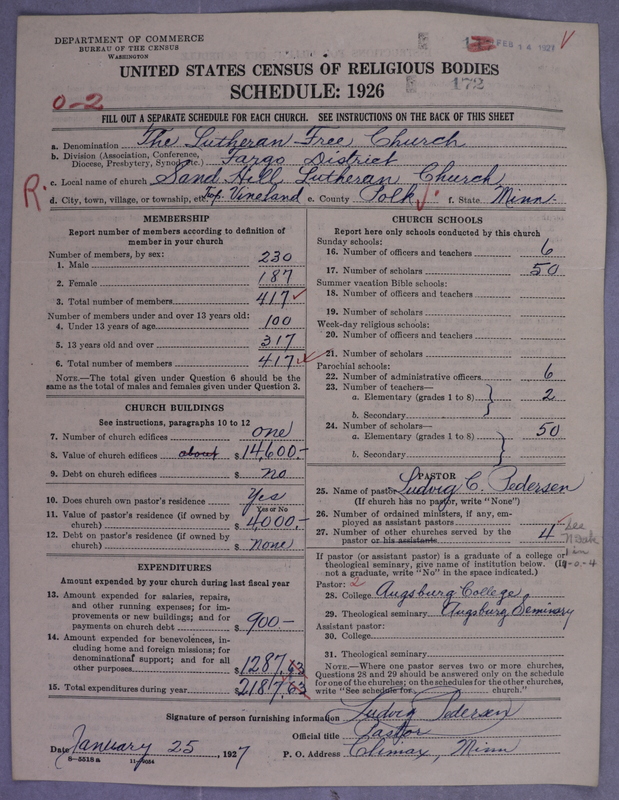 DEPARTMENT OF COMMERCE
BUREAU OF THE CENSUS
WASHINGTON
FEB 14 1927
172
UNITED STATES CENSUS OF RELIGIOUS BODIES
SCHEDULE: 1926
0-2
FILL OUT A SEPARATE SCHEDULE FOR EACH CHURCH. SEE INSTRUCTIONS ON THE BACK OF THIS SHEET
a. Denomination The Lutheran Free Church
b. Division (Association, Conference, Diocese, Presbytery, Synod, etc.) Fargo District
c. Local name of church Sand Hill Lutheran Church
R.
d. City, town, village, or township, etc. Twp. Vineland e. County Polk f. State Minn.
MEMBERSHIP
Report number of members according to definition of
member in your church
Number of members, by sex:
1. Male 230
2. Female 187
3. Total number of members 417
Number of members under and over 13 years old:
4. Under 13 years of age 100
5. 13 years old and over 317
6. Total number of members 417
NOTE.—The total given under Question 6 should be the
same as the total of males and females given under Question 3.
CHURCH BUILDINGS
See instructions, paragraphs 10 to 12
7. Number of church edifices one
8. Value of church edifices about $14,600.-
9. Debt on church edifices $ no
10. Does church own pastor's residence Yes
Yes or No
11. Value of pastor's residence (if owned by
church) $4,000.-
12. Debt on pastor's residence (if owned by
church) $ none
EXPENDITURES
Amount expended by your church during last fiscal year
13. Amount expended for salaries, repairs,
and other running expenses; for im-
provements or new buildings; and for
payments on church debt $ 900-
14. Amount expended for benevolences, in-
cluding home and foreign missions; for
denominational support; and for all
other purposes $1287.63
15. Total expenditures during year $2187.63
CHURCH SCHOOLS
Report here only schools conducted by this church
Sunday schools:
16. Number of officers and teachers 6
17. Number of scholars 50
Summer vacation Bible schools:
18. Number of officers and teachers
19. Number of scholars
Week-day religious schools:
20. Number of officers and teachers
21. Number of scholars
Parochial schools:
22. Number of administrative officers 6
23. Number of teachers—
a. Elementary (grades 1 to 8) 2
b. Secondary
24. Number of scholars—
a. Elementary (grades 1 to 8) 50
b. Secondary
PASTOR
25. Name of pastor Ludvig C. Pedersen
(If church has no pastor, write "None")
26. Number of ordained ministers, if any, em-
ployed as assistant pastors
27. Number of other churches served by the
pastor or his assistants 4
see
If pastor (or assistant pastor) is a graduate of a college or
theological seminary, give name of institution below. (If
not a graduate, write "No" in the space indicated.)
Pastor: 2
28. College Augsburg College
29. Theological seminary Augsburg Seminary
Assistant pastor:
30. College
31. Theological seminary
NOTE.—Where one pastor serves two or more churches,
Questions 28 and 29 should be answered only on the schedule
for one of the churches; on the schedules for the other churches,
write "See schedule for church."
Signature of person furnishing information Ludvig Pedersen
Official title Pastor
Date January 25, 1927
P. O. Address Climax, Minn
8-5518a 11-9054